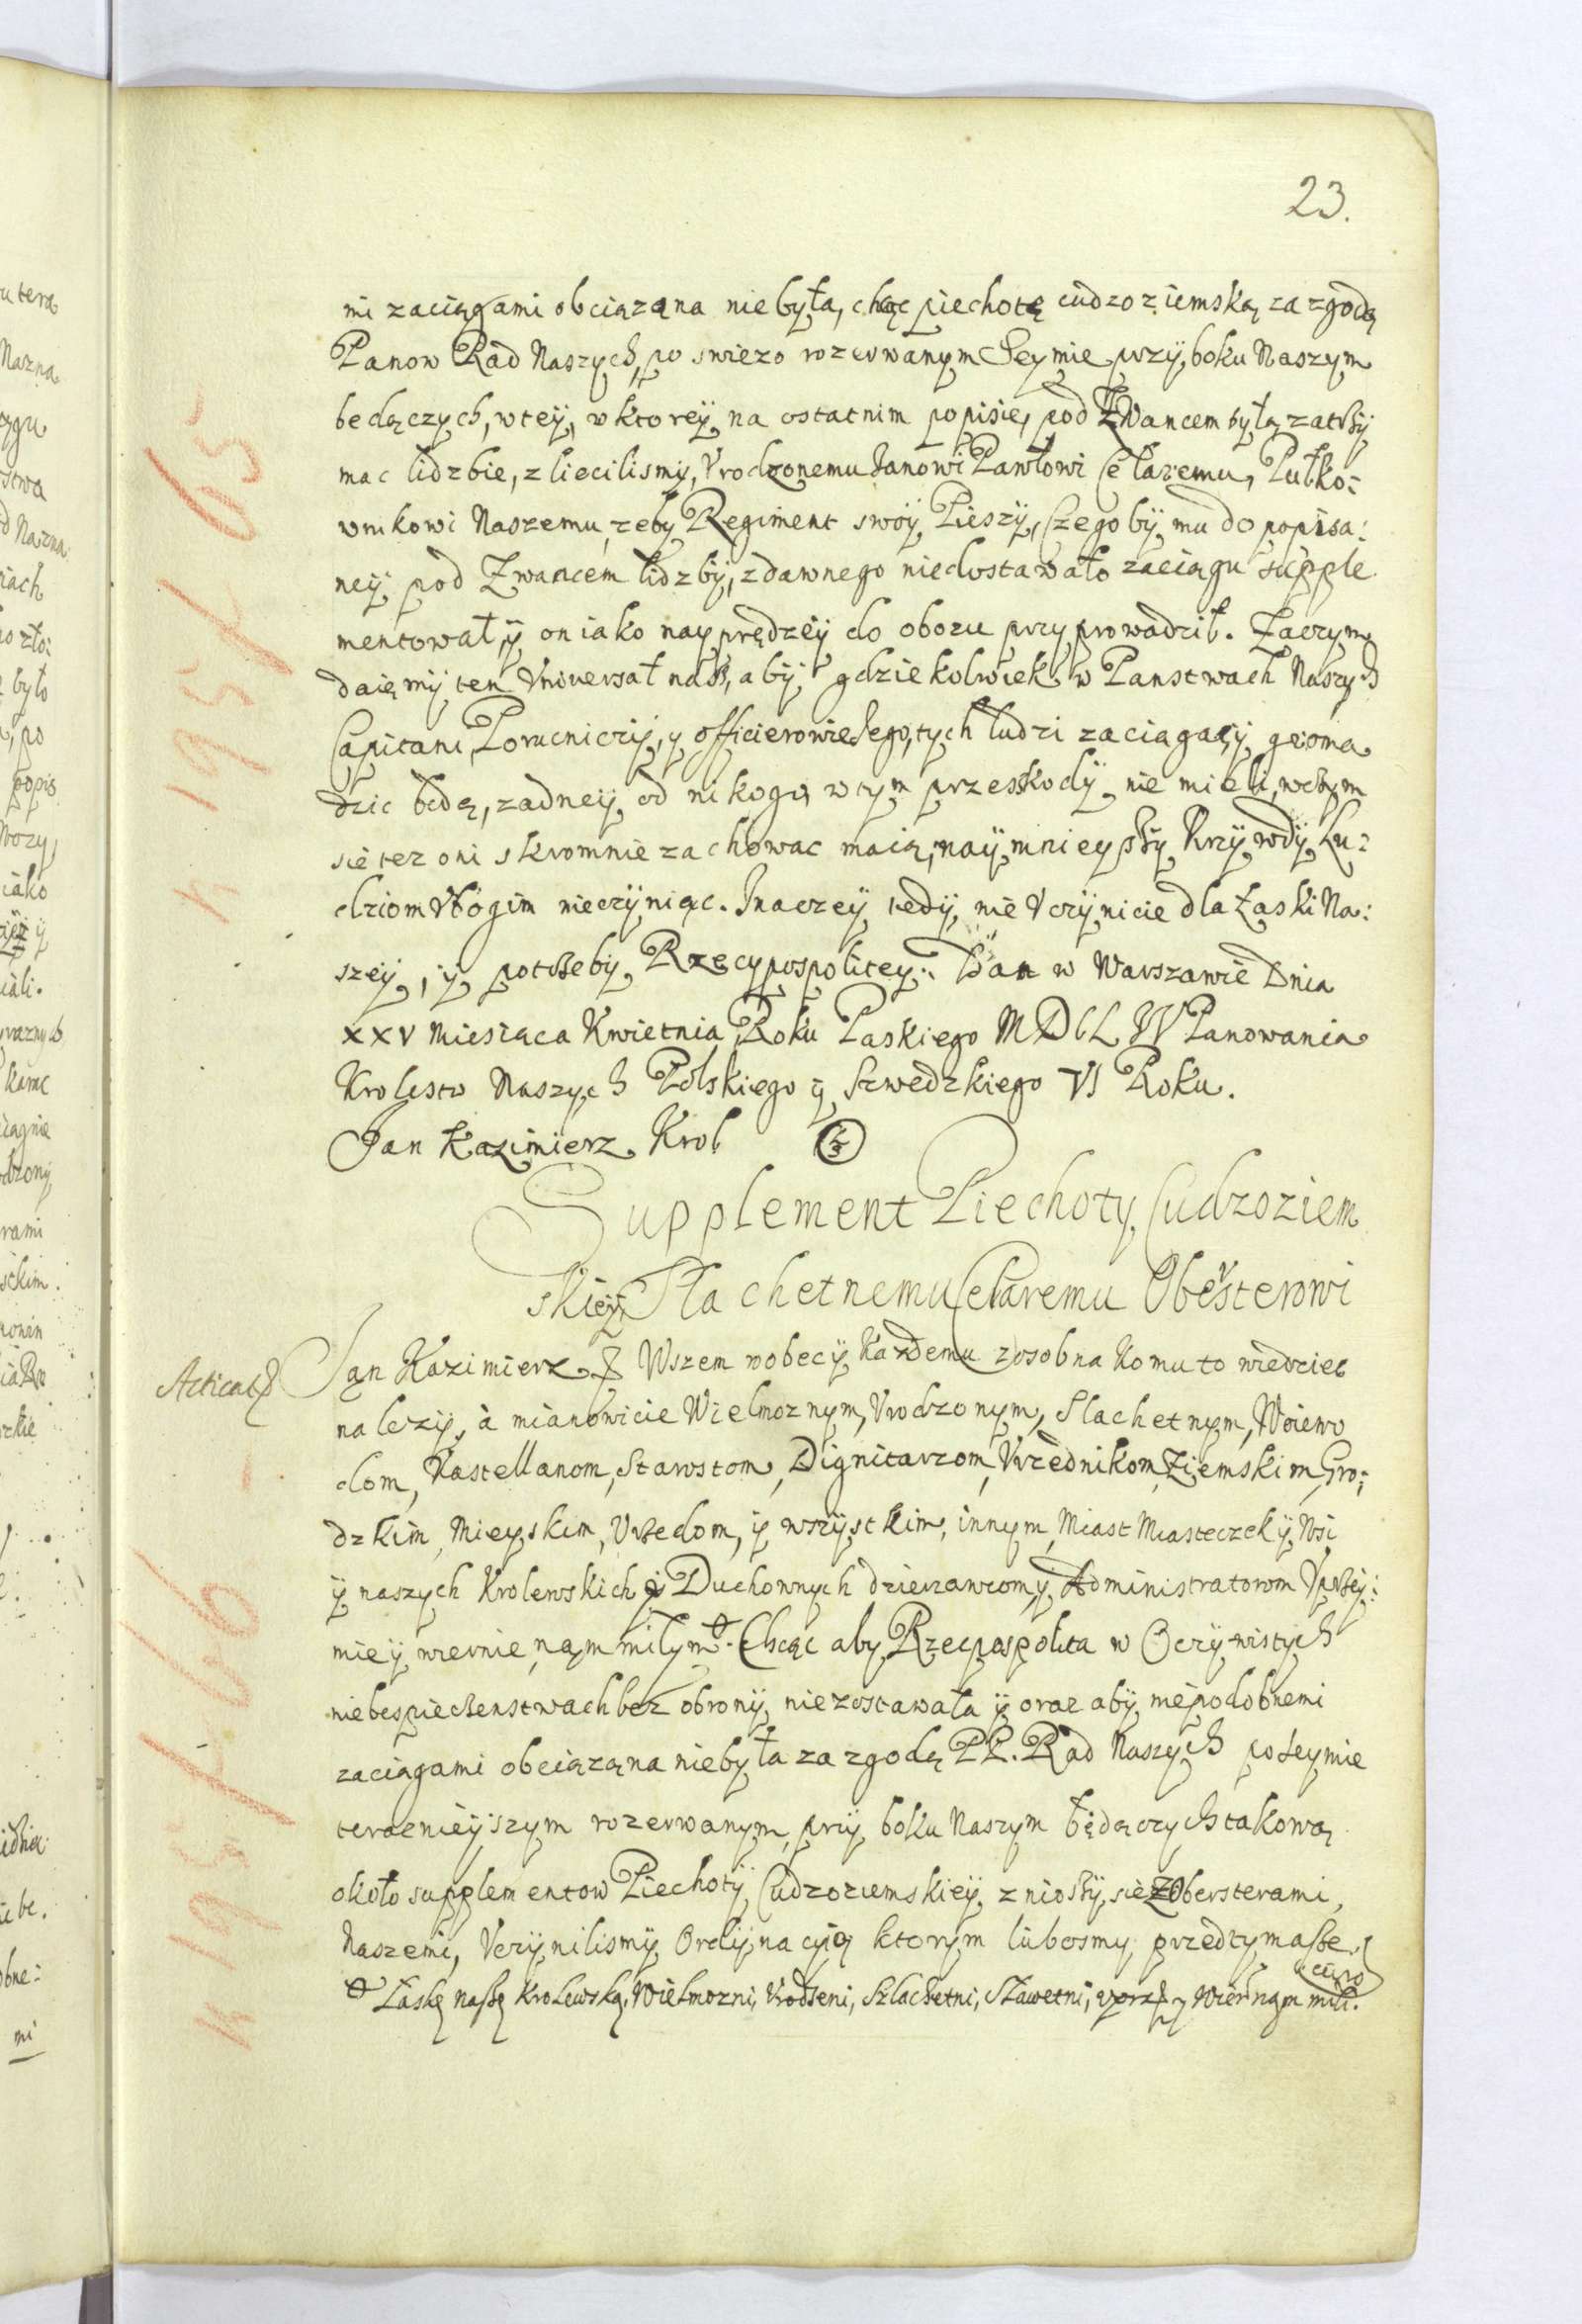 23.
mi zaciągami obciązana nie była, chcąc piechotę cudzoziemską za zgodą
Panow Rad Naszych, po swiezo rozerwanym Seymie przÿ boku Naszym
będączych, w teÿ, w ktoreÿ na ostatnim popisie, pod Zwancem była zatrzÿ
mac lidzbie, zliecilismÿ, Vrodzonemu Janowi Pawłowi Cellaremu, Pułko:
wnikowi Naszemu, zeby Regiment swoÿ Pieszÿ, Czego bÿ mu do popisa:
neÿ pod Zwancem lidzbÿ, zdawnego niedostawało zaciągu supple
mentował, ÿ on iako nayprędzeÿ do obozu przyprowadził. Zaczym
daięmÿ ten Vniversał nasz, abÿ gdziekolwiek w Panstwach Naszych
Capitani, Porucniczÿ, y officierowie Jego, tych ludzi zaciagacÿ groma
dzic będą, zadneÿ od nikogo w tym przeszkodÿ nie mieli, w czym
się tez oni skromnie zachowac maią, naÿmnieyszÿ Krzÿwdÿ Lu:
dziom Vbogim nieczÿniąc. Inaczeÿ tedÿ nie Vczÿnicie dla Łaski Na:
szeÿ, ÿ potrzebÿ Rzeczypospolitey. Dan w Warszawie Dnia
XXV Miesiąca Kwietnia Roku Paskiego MDCLIV Panowania
Krolestw Naszych Polskiego ÿ Szwedzkiego VI Roku.
Jan Kazimierz Krol
Supplement Piechoty Cudzoziem
skieÿ Slachetnemu Cellaremu Obersterowi
Acticat
Jan Kazimierz & Wszem wobecÿ Kazdemu zosobna Komu to wiedziec
nalezÿ, à mianowicie Wielmoznym, Vrodzonym, Slachetnym, Woiewo
dom, Kastellanom, Starostom, Dignitarzom, Vrzędnikom Ziemskim, Gro:
dzkim, Mieyskim, Vrzedom, ÿ wszÿstkim, innym Miast Miasteczek ÿ Wsi
ÿ naszych Krolewskich ÿ Duchownych dzierzawcom, ÿ Administratorom Vprzeÿ:
mieÿ wiernie nąm miłym. Chcąc aby Rzeczpospolita w Oczÿwistych
niebespieczenstwach bez obronÿ niezostawała ÿ oraz abÿ niepodobnemi
zaciągami obciązana niebyła za zgodą PP. Rad Naszych po seymie
teraznieyszym rozerwanym, przÿ boku Naszym będączych takową
około supplementow Piechotÿ Cudzoziemskieÿ, zniozszÿ się z Obersterami,
Naszemi, Vczÿnilismÿ Ordÿnacÿią ktorym lubosmy przedtym asse
curo
Łaskę naszę Krolewską. Wielmozni, Vrodzeni, Szlachetni, Sławetni, vprz. y Wiern. nąm mili.
K 195 k 65
K 195 k 66